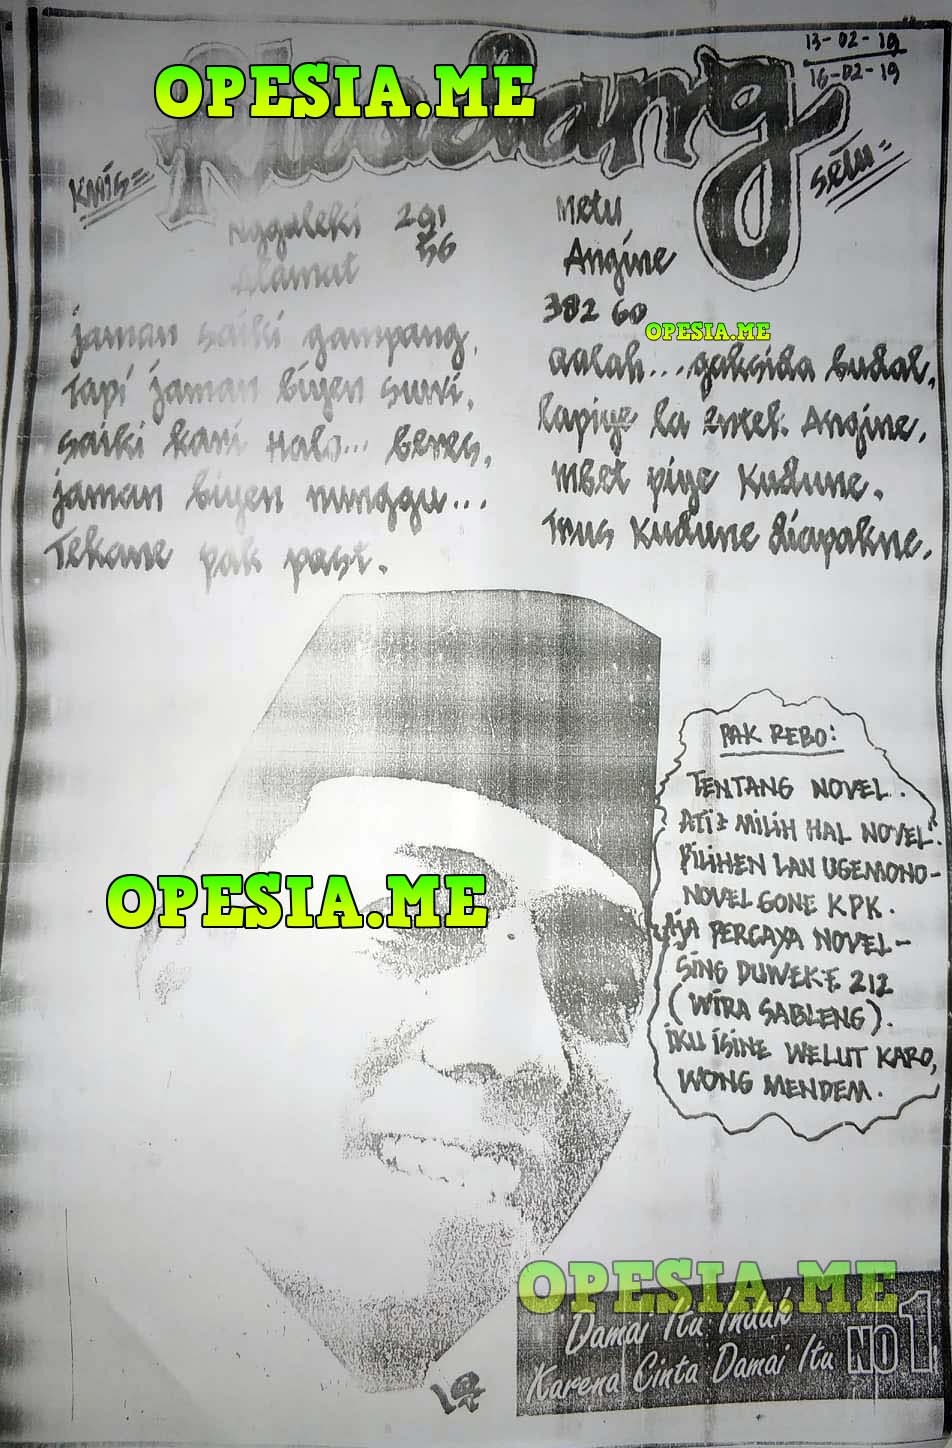 13-02-19
16-02-19
OPESIA.ME
Kmis=
Setu=
Nggoleki 291
Alamat 56
jaman saiki gampang.
Tapi jaman biyen suwi.
saiki kari Halo... beres.
jaman biyen nunggu...
Tekane pak post.
Metu
Angine
382 60
OPESIA.ME
aalah... gaksida budal.
lapiye la entek Angine.
mbet piye Kudune.
Trus Kudune diapakne.
PAK REBO:
TENTANG NOVEL.
ATI2 MILIH HAL NOVEL.
PILIHEN LAN UGEMONO-
NOVEL GONE KPK.
AJA PERCAYA NOVEL-
SING DUWEKE 212
(WIRA SABLENG).
IKU ISINE WELUT KARO,
WONG MENDEM.
OPESIA.ME
OPESIA.ME
Damai Itu Indah
Karena Cinta Damai Itu
NO 1